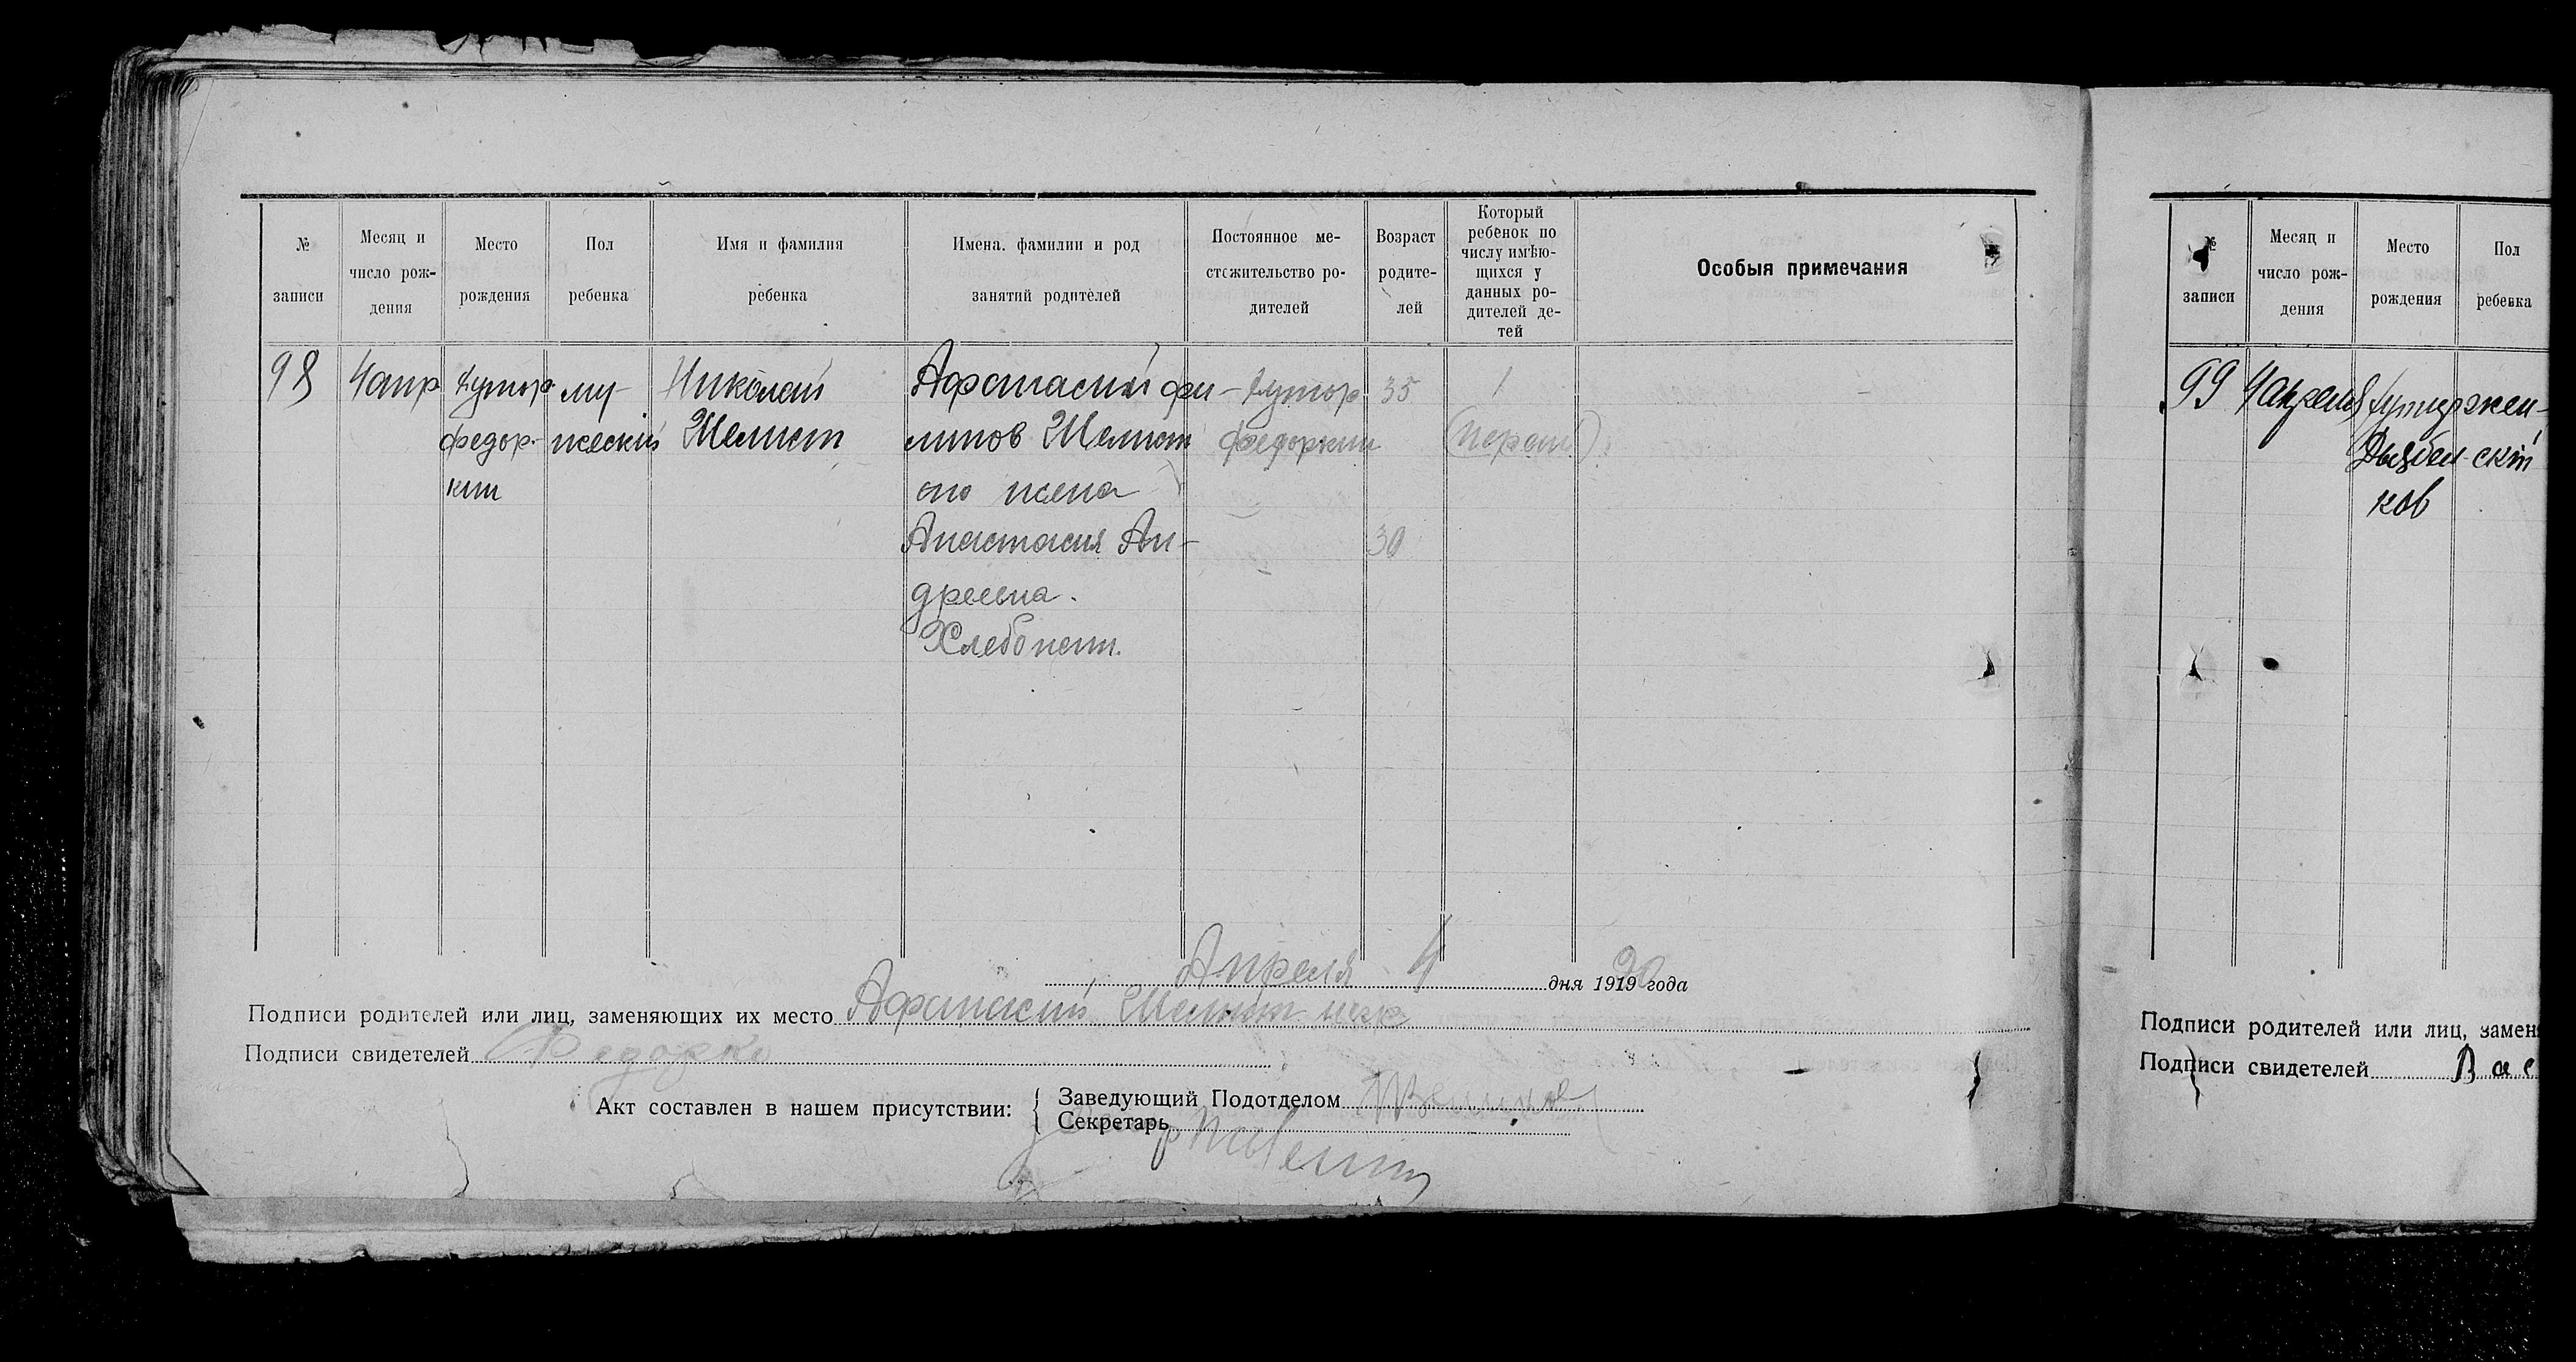 № записи
Месяц и число рож-дения
Место рождения
Пол ребенка
Имя и фамилия ребенка
Имена. фамилии и род занятий родителей
Постоянное ме-стожительство ро-дителей
Возраст родите-лей
Который ребенок по числу имѣю-щихся у данных ро-дителей де-тей
Особыя примечания
98
4 апр
Хутор
федор-
кин
му-
жеский
Николай
Шелист
Афанасий фи-
липов Шелист
его жена
Анастасия Ан-
дреевна.
Хлебопаш.
Хутор
федоркин
35
30
1
(Первый)
Апреля 4 дня 1919 20 года
Подписи родителей или лиц, заменяющих их место Афанасий Шелист
Подписи свидетелей Федорко
Акт составлен в нашем присутствии:
Заведующий Подотделом
Секретарь
№ записи
Месяц и число рож-дения
Место рождения
Пол ребенка
99
4 Апреля
Хутор
ков
жен-
ский
Подписи родителей или лиц, замен
Подписи свидетелей Вас